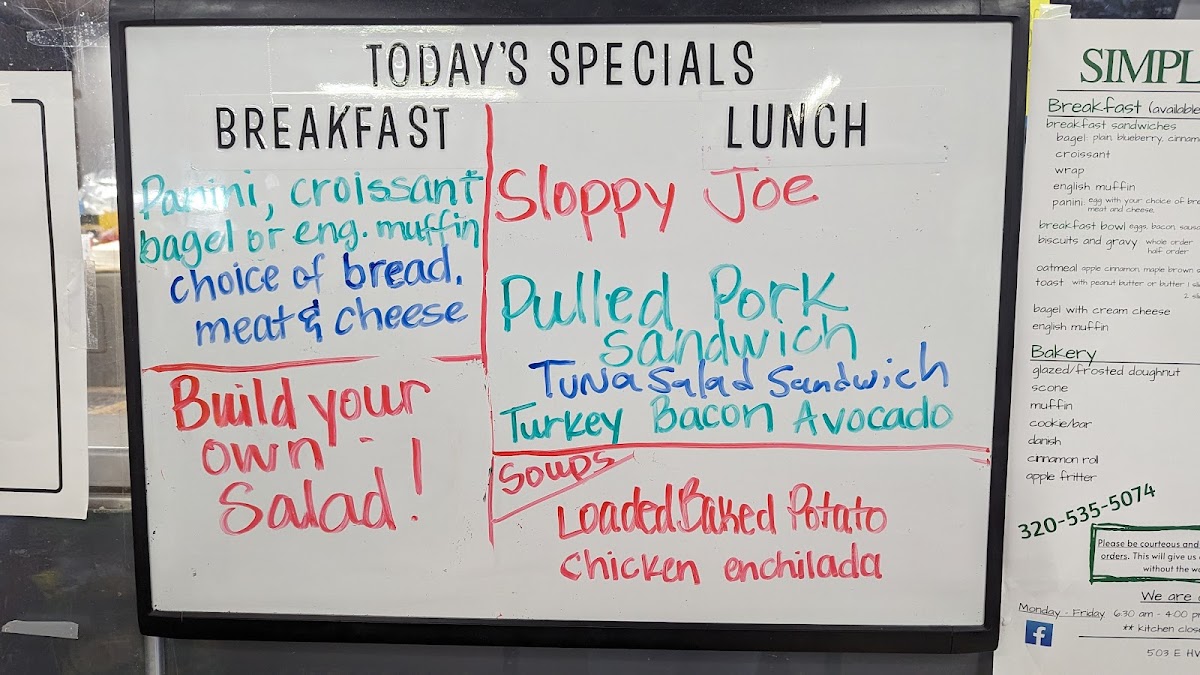 TODAY'S SPECIALS
BREAKFAST
Panini, croissant
bagel or eng. muffin
choice of bread,
meat & cheese
Build your
own
Salad!
LUNCH
Sloppy Joe
Pulled Pork
Sandwich
Tuna Salad Sandwich
Turkey Bacon Avocado
Soups
Loaded Baked Potato
chicken enchilada
SIMPL
Breakfast (available
breakfast sandwiches
bagel: plain, blueberry, cinnam
croissant
wrap
english muffin
panini egg with your choice of bre
meat and cheese,
breakfast bowl eggs, bacon, sausa
biscuits and gravy whole order
half order
oatmeal apple cinnamon, maple brown s
toast with peanut butter or butter 1 sli
2 sli
bagel with cream cheese
english muffin
Bakery
glazed/frosted doughnut
scone
muffin
cookie/bar
danish
cinnamon roll
apple fritter
320-535-5074
Please be courteous and
orders. This will give us
without the wa
We are
Monday - Friday 6:30 am - 4:00 pm
** kitchen close
503 E HW